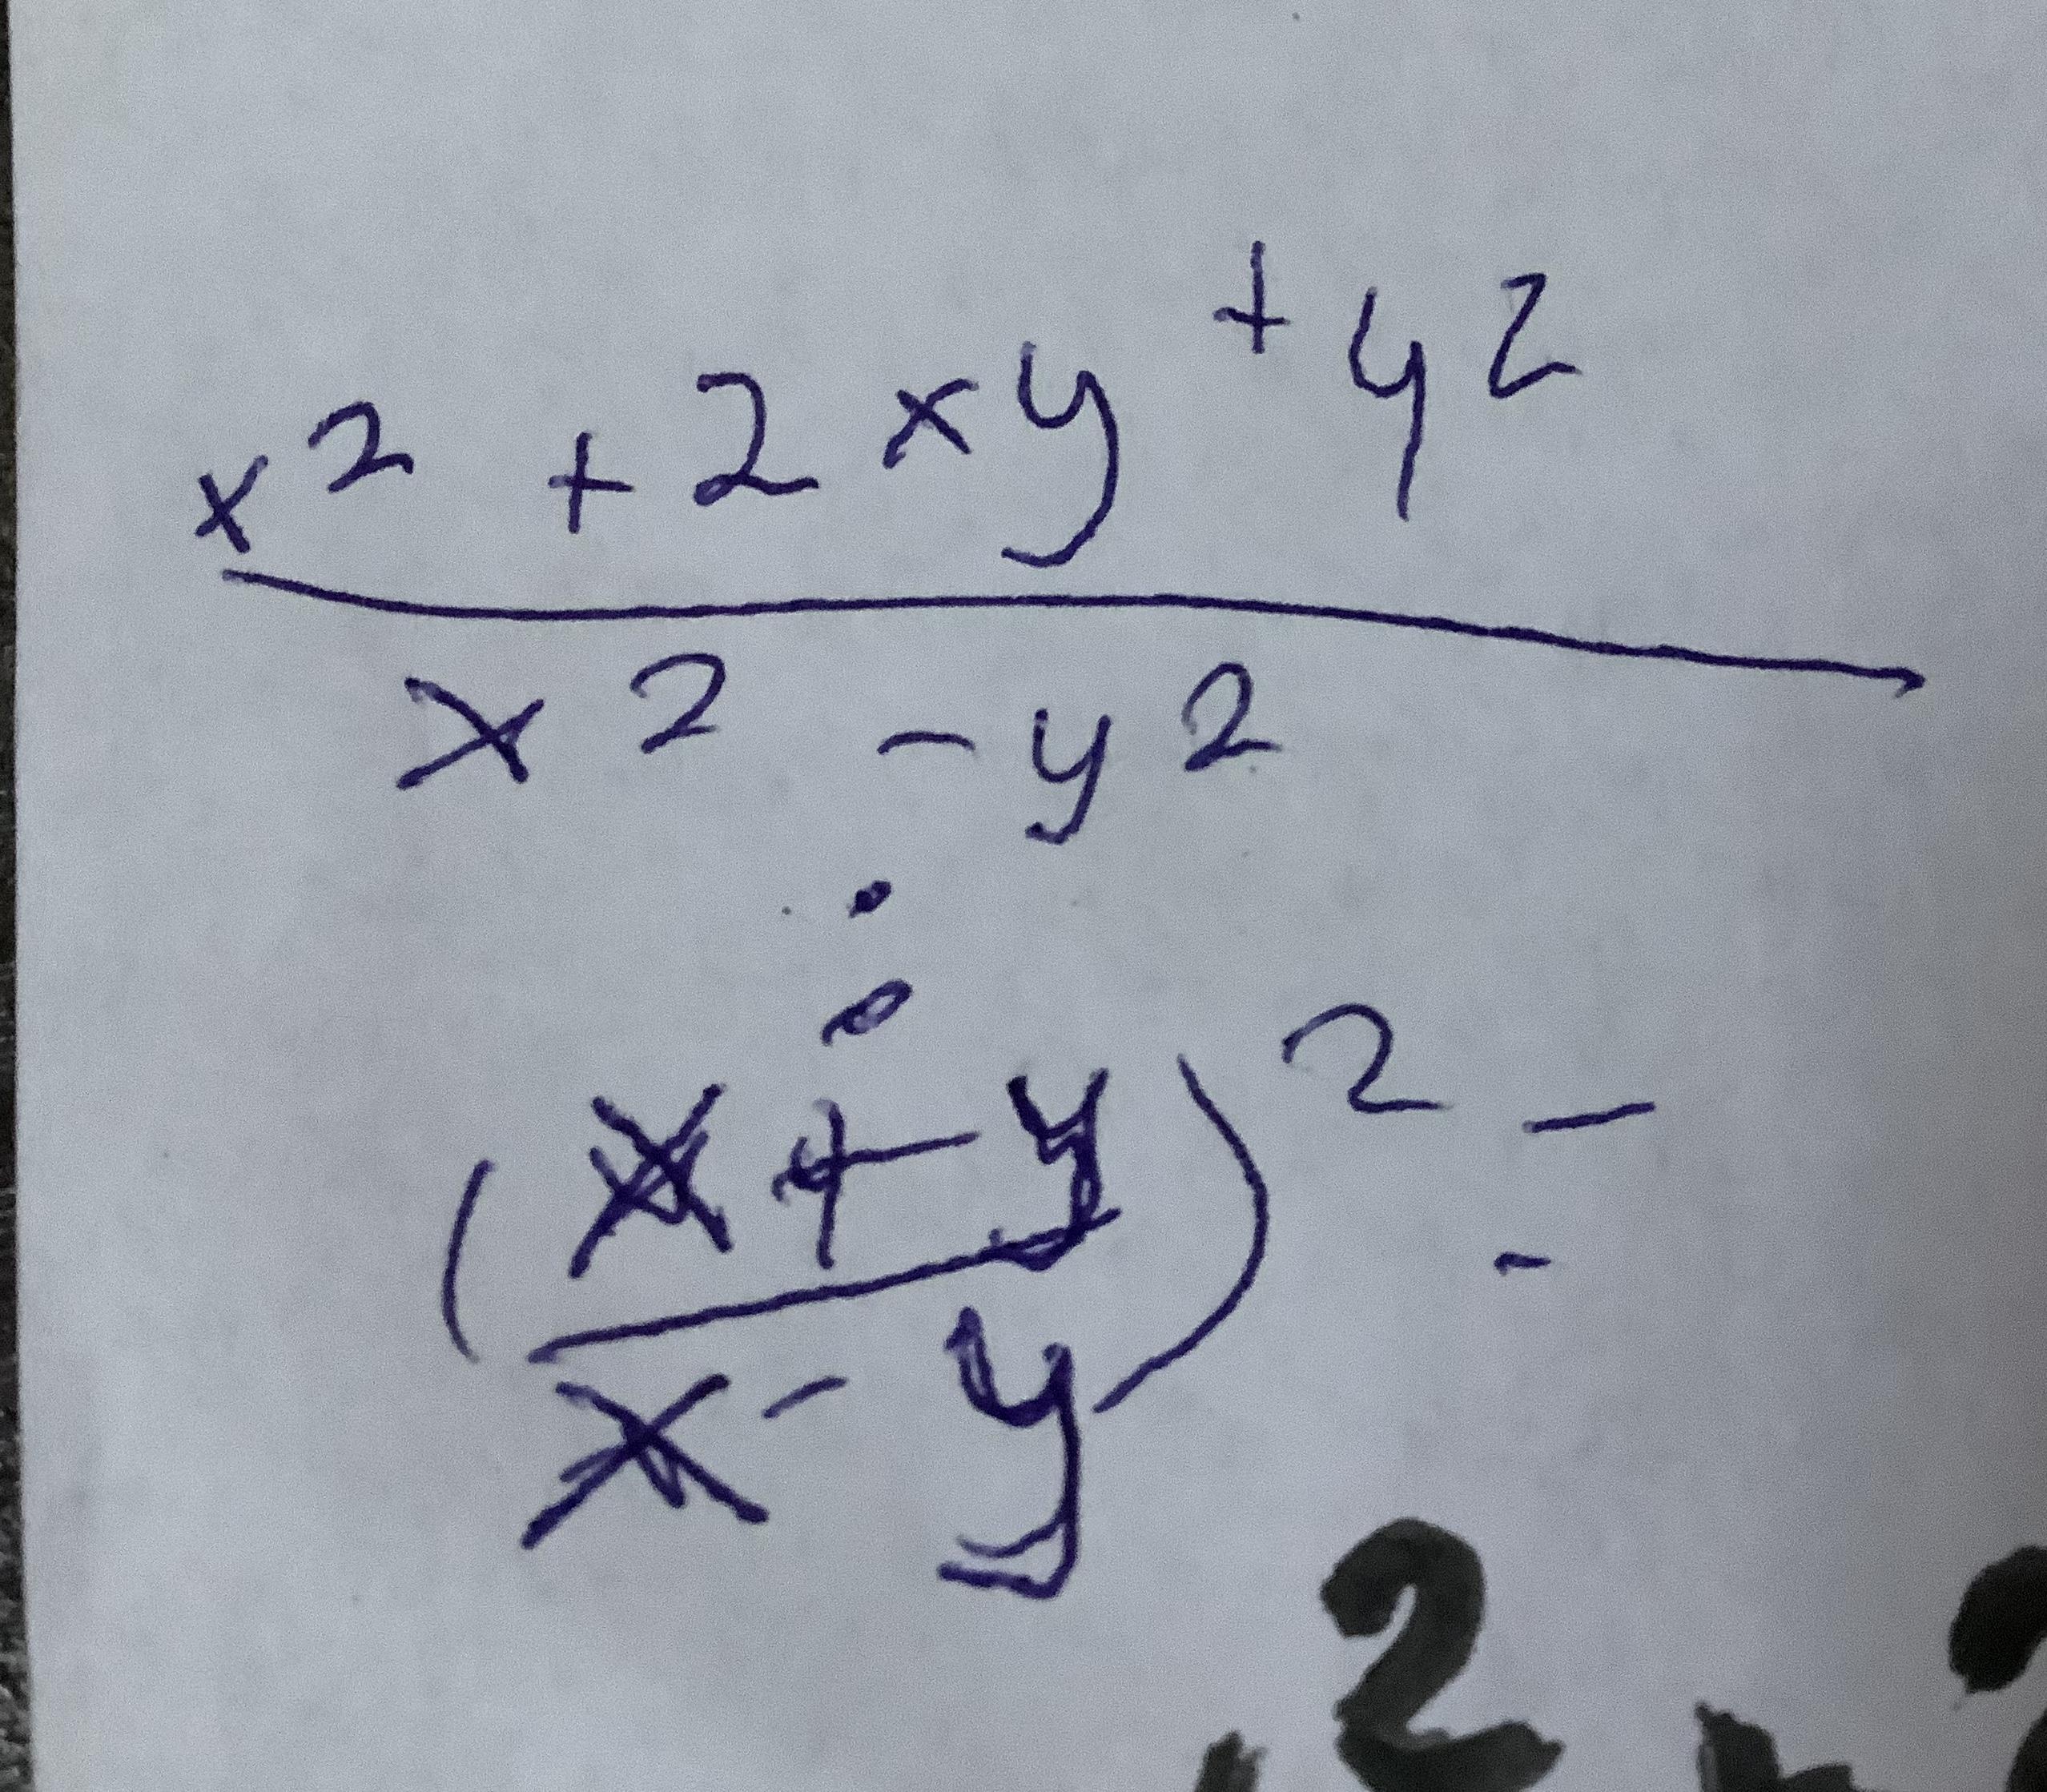 x² + 2xy + y²
x² - y²
:
(x + y)² =
x - y
2